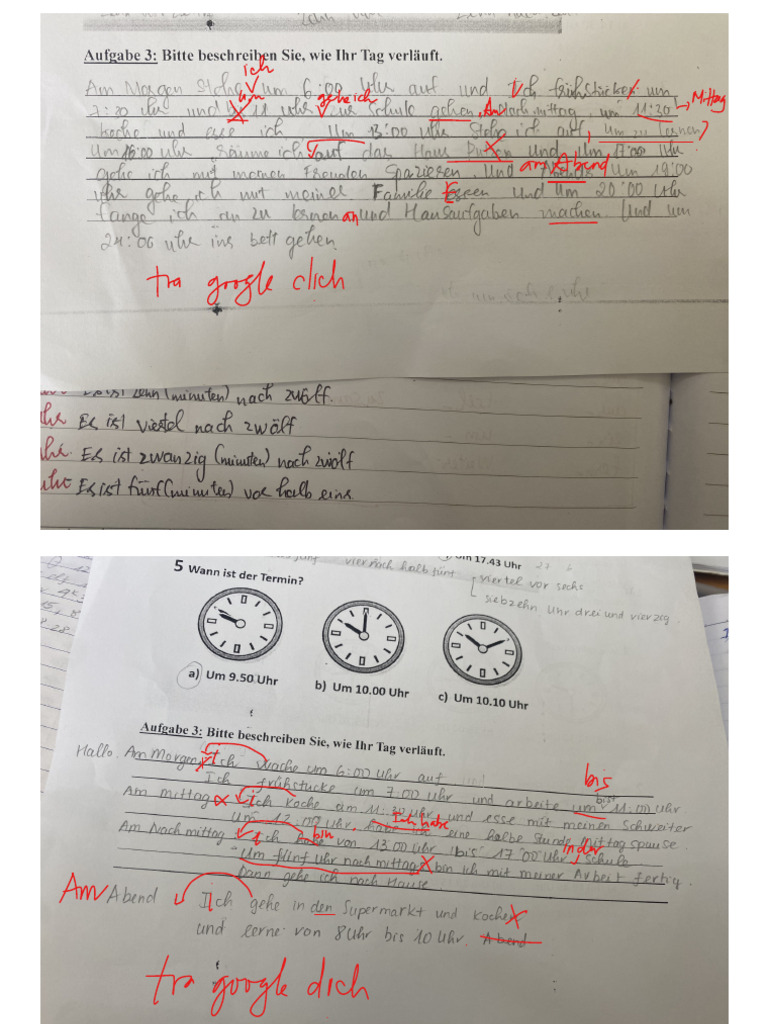 Aufgabe 3: Bitte beschreiben Sie, wie Ihr Tag verläuft.
ich
Am Morgen Stehe um 6:00 Uhr auf und Ich frühstücke um
um gehe ich Mittag
7:20 Uhr und 11 Uhr zur Schule gehen, Am Nach mittag, um 11:30
koche und esse ich um 13:00 Uhr Stehe ich auf, um zu lernen
Um 16:00 Uhr räume ich auf das Haus Putzen und um 17:00 Uhr
am Abend
gehe ich mit meinen Freunden Spazieren, und Um 19:00
Uhr gehe ich mit meiner Familie Essen und um 20:00 Uhr
fange ich an zu lernen an und Hausaufgaben machen. Und um
24:00 Uhr ins bett gehen.
tra google dich
zehn (minuten) nach zwölf.
Es ist viestel nach zwälf
Es ist zwanzig (minuten) nach zwölf
Es ist fünf (minuten) vor halb eins
Um 17.43 Uhr
vier nach halb fünf
viertel vor sechs
siebzehn Uhr drei und vierzig
5 Wann ist der Termin?
a) Um 9.50 Uhr
b) Um 10.00 Uhr
c) Um 10.10 Uhr
Aufgabe 3: Bitte beschreiben Sie, wie Ihr Tag verläuft.
Hallo. Am Morgen, Ich wache um 6:00 Uhr auf und
bis
Ich frühstücke um 7:00 Uhr und arbeite um 11:00 Uhr
Am mittag Ich koche um 11:30 Uhr und esse mit meinen Schweiter
Ich habe
Um 12:00 Uhr, habe ich eine halbe Stunde Mittagspause.
bin in der
Am Nach mittag Ich habe von 13:00 Uhr bis 17:00 Uhr Schule
Um fünf Uhr nach mittag bin ich mit meiner Arbeit fertig.
Dann gehe ich nach Hause
Am Abend Ich gehe in den Supermarkt und koche
und lerne von 8 Uhr bis 10 Uhr. Abend
tra google dich